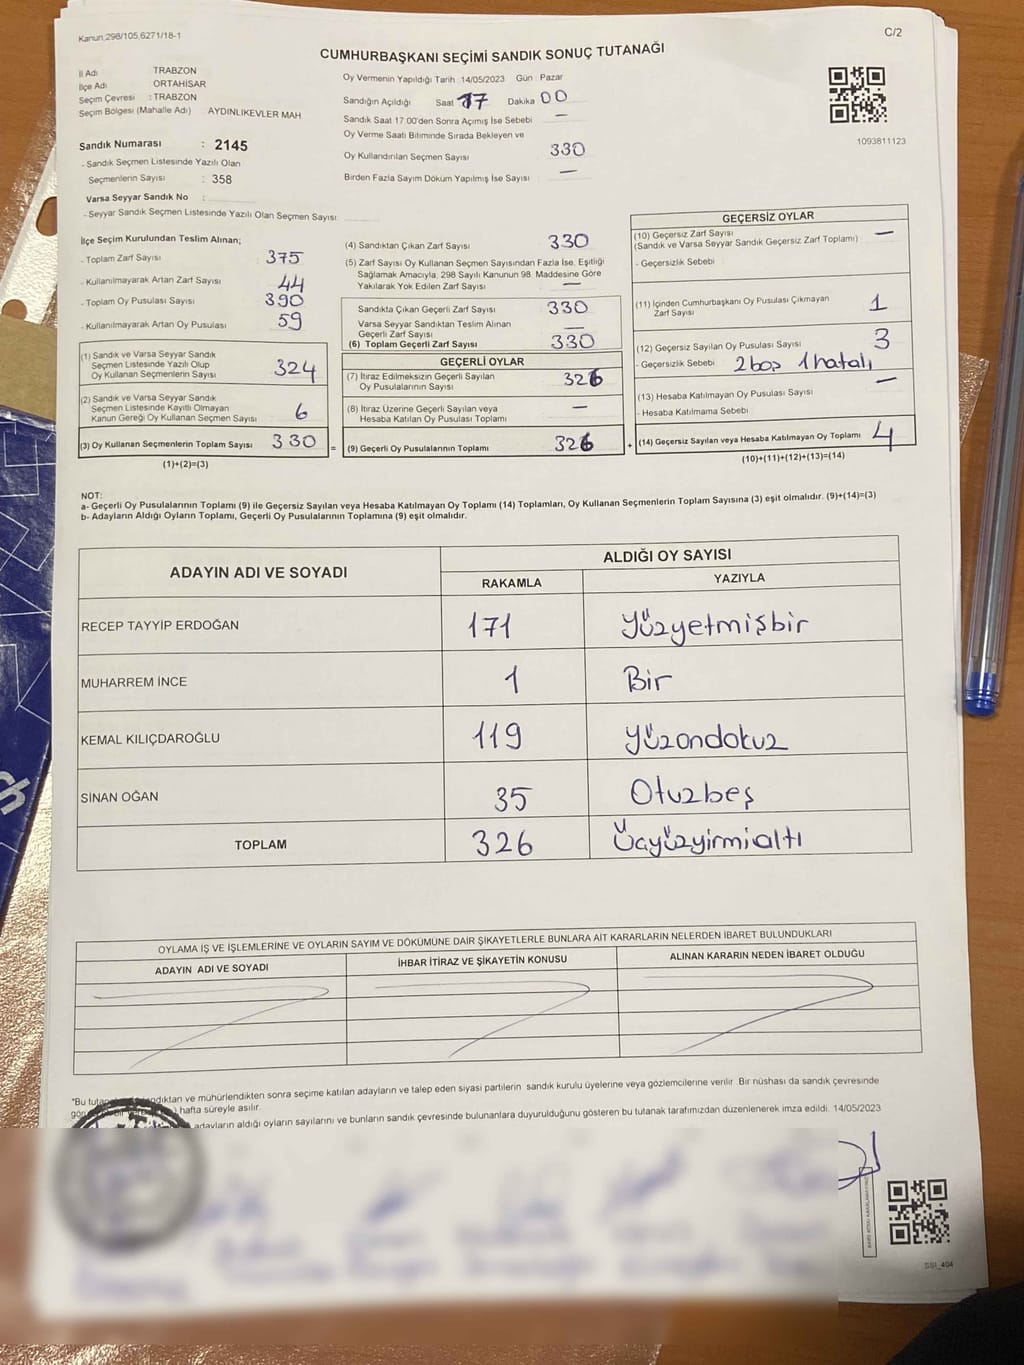 Kanun,298/105,6271/18-1
C/2
CUMHURBAŞKANI SEÇİMİ SANDIK SONUÇ TUTANAĞI
İl Adı TRABZON
İlçe Adı ORTAHİSAR
Seçim Çevresi : TRABZON
Seçim Bölgesi (Mahalle Adı) AYDINLIKEVLER MAH
Sandık Numarası : 2145
- Sandık Seçmen Listesinde Yazılı Olan
Seçmenlerin Sayısı : 358
Varsa Seyyar Sandık No :
- Seyyar Sandık Seçmen Listesinde Yazılı Olan Seçmen Sayısı:
Oy Vermenin Yapıldığı Tarih :14/05/2023 Gün : Pazar
Sandığın Açıldığı Saat 17 Dakika 00
Sandık Saat 17.00'den Sonra Açımış İse Sebebi —
Oy Verme Saati Bitiminde Sırada Bekleyen ve
Oy Kullandırılan Seçmen Sayısı 330
Birden Fazla Sayım Döküm Yapılmış İse Sayısı : —
1093811123
İlçe Seçim Kurulundan Teslim Alınan;
- Toplam Zarf Sayısı : 375
- Kullanılmayarak Artan Zarf Sayısı : 44
- Toplam Oy Pusulası Sayısı : 390
- Kullanılmayarak Artan Oy Pusulası : 59
(1) Sandık ve Varsa Seyyar Sandık
Seçmen Listesinde Yazılı Olup
Oy Kullanan Seçmenlerin Sayısı 324
(2) Sandık ve Varsa Seyyar Sandık
Seçmen Listesinde Kayıtlı Olmayan
Kanun Gereği Oy Kullanan Seçmen Sayısı 6
(3) Oy Kullanan Seçmenlerin Toplam Sayısı 330
(1)+(2)=(3)
=
(4) Sandıktan Çıkan Zarf Sayısı 330
(5) Zarf Sayısı Oy Kullanan Seçmen Sayısından Fazla İse, Eşitliği
Sağlamak Amacıyla, 298 Sayılı Kanunun 98. Maddesine Göre
Yakılarak Yok Edilen Zarf Sayısı —
Sandıkta Çıkan Geçerli Zarf Sayısı 330
Varsa Seyyar Sandıktan Teslim Alınan
Geçerli Zarf Sayısı —
(6) Toplam Geçerli Zarf Sayısı 330
GEÇERLİ OYLAR
(7) İtiraz Edilmeksizin Geçerli Sayılan
Oy Pusulalarının Sayısı 326
(8) İtiraz Üzerine Geçerli Sayılan veya
Hesaba Katılan Oy Pusulası Toplamı —
(9) Geçerli Oy Pusulalarının Toplamı 326
+
GEÇERSİZ OYLAR
(10) Geçersiz Zarf Sayısı —
(Sandık ve Varsa Seyyar Sandık Geçersiz Zarf Toplamı)
- Geçersizlik Sebebi
(11) İçinden Cumhurbaşkanı Oy Pusulası Çıkmayan
Zarf Sayısı 1
(12) Geçersiz Sayılan Oy Pusulası Sayısı 3
- Geçersizlik Sebebi 2 boş 1 hatalı
(13) Hesaba Katılmayan Oy Pusulası Sayısı —
- Hesaba Katılmama Sebebi
(14) Geçersiz Sayılan veya Hesaba Katılmayan Oy Toplamı 4
(10)+(11)+(12)+(13)=(14)
NOT:
a- Geçerli Oy Pusulalarının Toplamı (9) ile Geçersiz Sayılan veya Hesaba Katılmayan Oy Toplamı (14) Toplamları, Oy Kullanan Seçmenlerin Toplam Sayısına (3) eşit olmalıdır. (9)+(14)=(3)
b- Adayların Aldığı Oyların Toplamı, Geçerli Oy Pusulalarının Toplamına (9) eşit olmalıdır.
ADAYIN ADI VE SOYADI
ALDIĞI OY SAYISI
RAKAMLA YAZIYLA
RECEP TAYYİP ERDOĞAN 171 Yüzyetmişbir
MUHARREM İNCE 1 Bir
KEMAL KILIÇDAROĞLU 119 Yüzondokuz
SİNAN OĞAN 35 Otuzbeş
TOPLAM 326 Üçyüzyirmialtı
OYLAMA İŞ VE İŞLEMLERİNE VE OYLARIN SAYIM VE DÖKÜMÜNE DAİR ŞİKAYETLERLE BUNLARA AİT KARARLARIN NELERDEN İBARET BULUNDUKLARI
ADAYIN ADI VE SOYADI İHBAR İTİRAZ VE ŞİKAYETİN KONUSU ALINAN KARARIN NEDEN İBARET OLDUĞU
*Bu ndıktan ve mühürlendikten sonra seçime katılan adayların ve talep eden siyasi partilerin sandık kurulu üyelerine veya gözlemcilerine verilir. Bir nüshası da sandık çevresinde
hafta süreyle asılır.
adayların aldığı oyların sayılarını ve bunların sandık çevresinde bulunanlara duyurulduğunu gösteren bu tutanak tarafımızdan düzenlenerek imza edildi. 14/05/2023
SSI_404